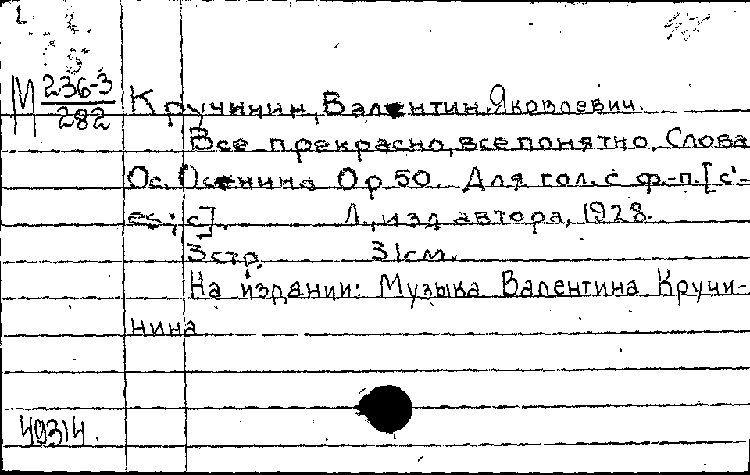 М 236-3
282
Кручинин, Валентин Яковлевич.
Все прекрасно, все понятно. Слова
Ос. Осенина Op 50. Для гол. с ф.-п. [c'-
es²; c].  Л., изд автора, 1928.
3стр. 31см.
На издании: Музыка Валентина Кручи-
нина
40314.